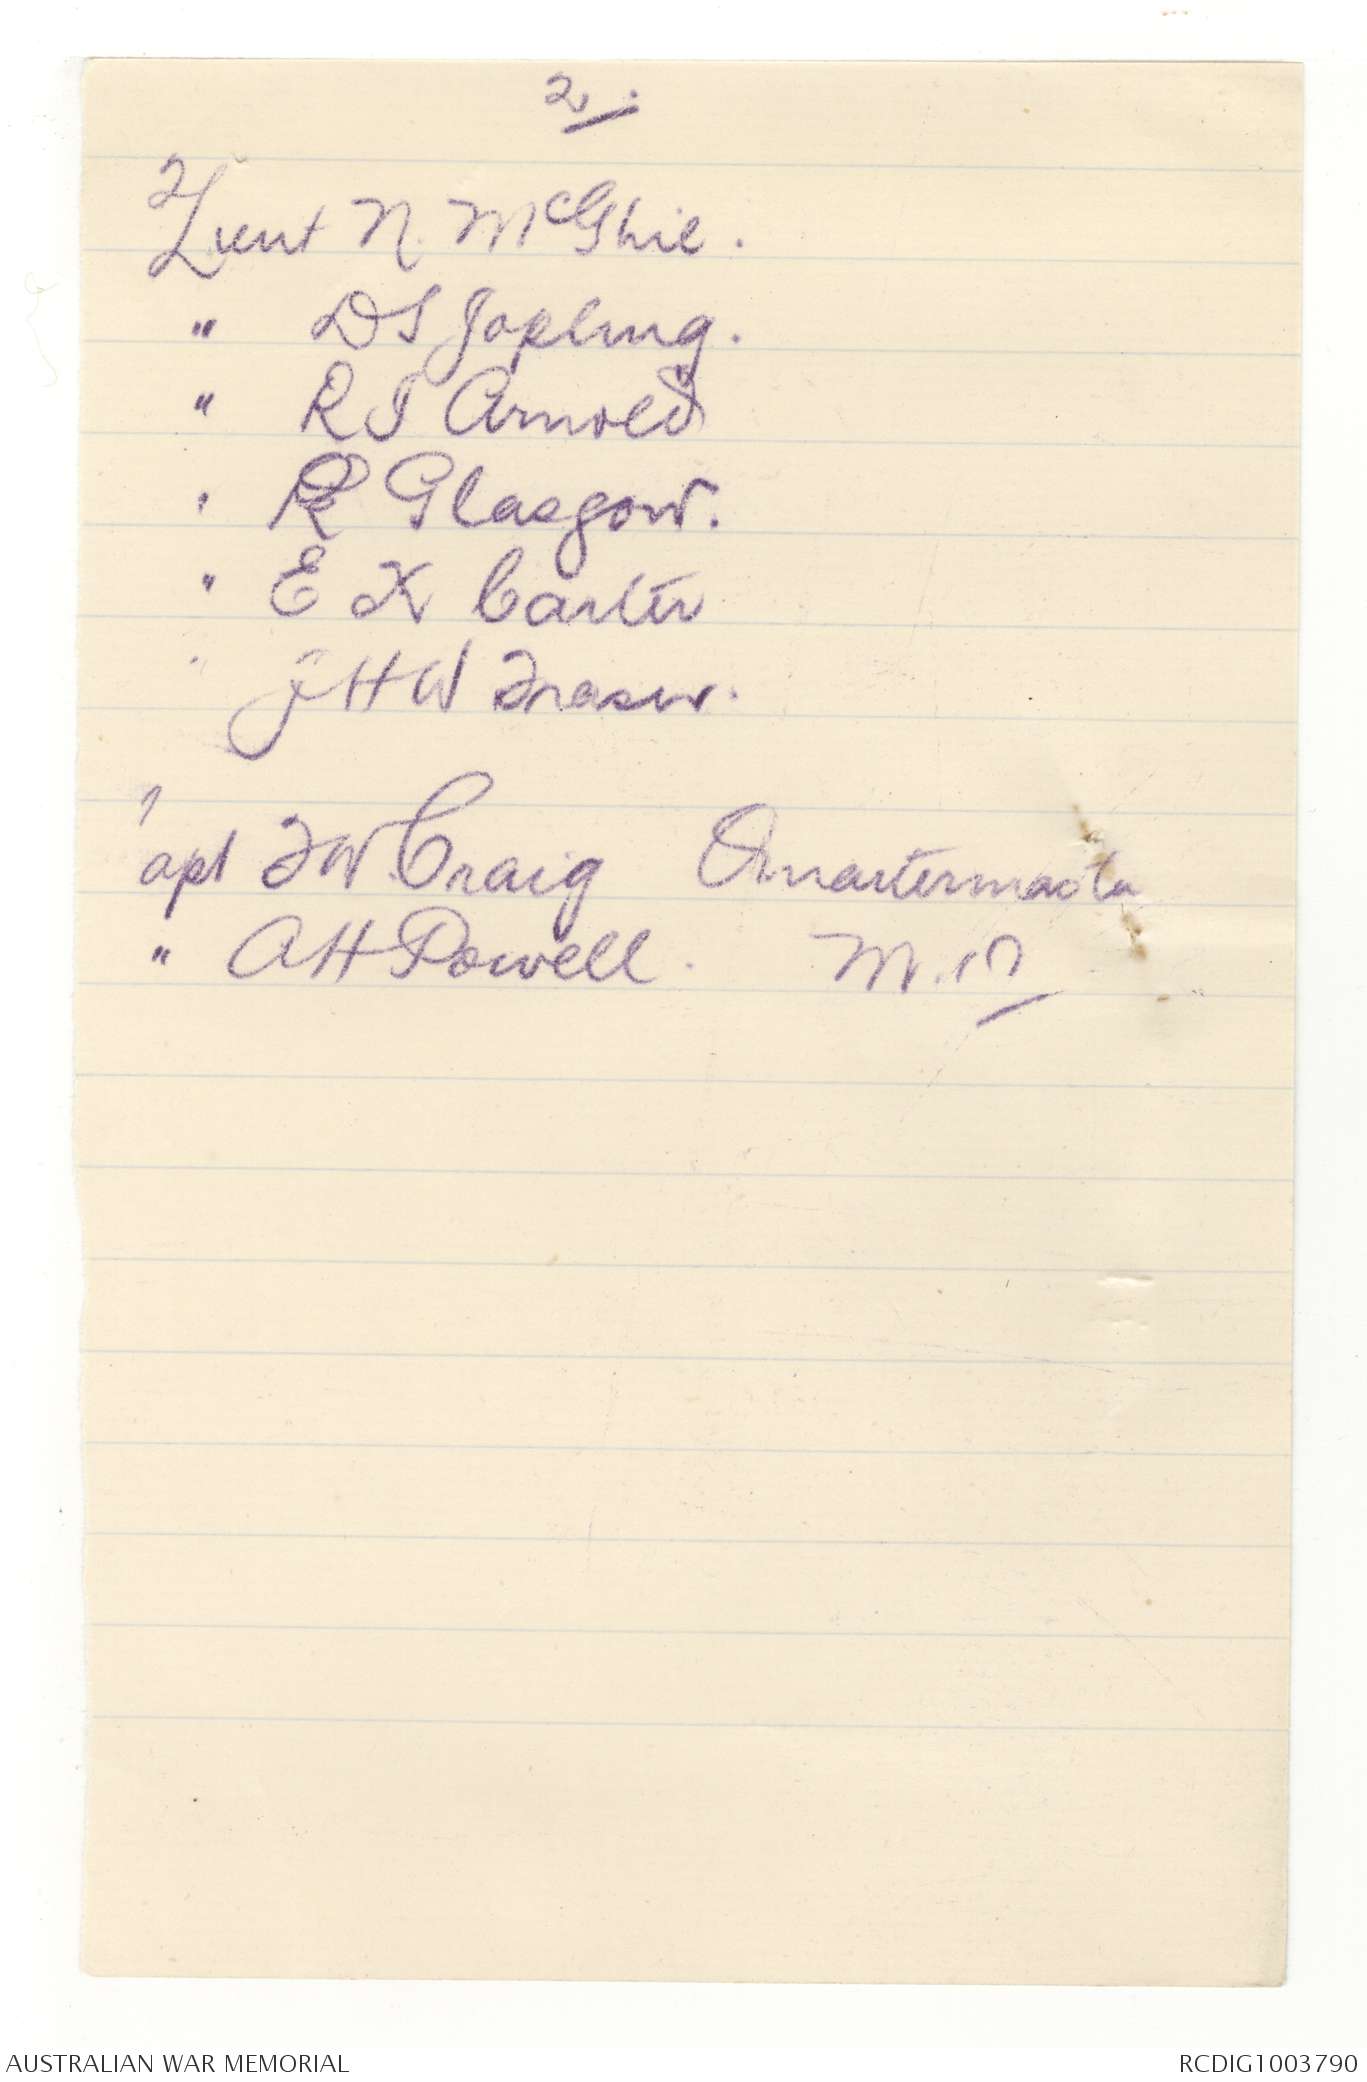 2.
Lieut N. McGhie.
" D S Jopling.
" R J Arnold
" Glasgow.
" E K Carter
" J H W Fraser.
Capt F W. Craig Quartermaster
" A H Powell. M.O
AUSTRALIAN WAR MEMORIAL
RCDIG1003790